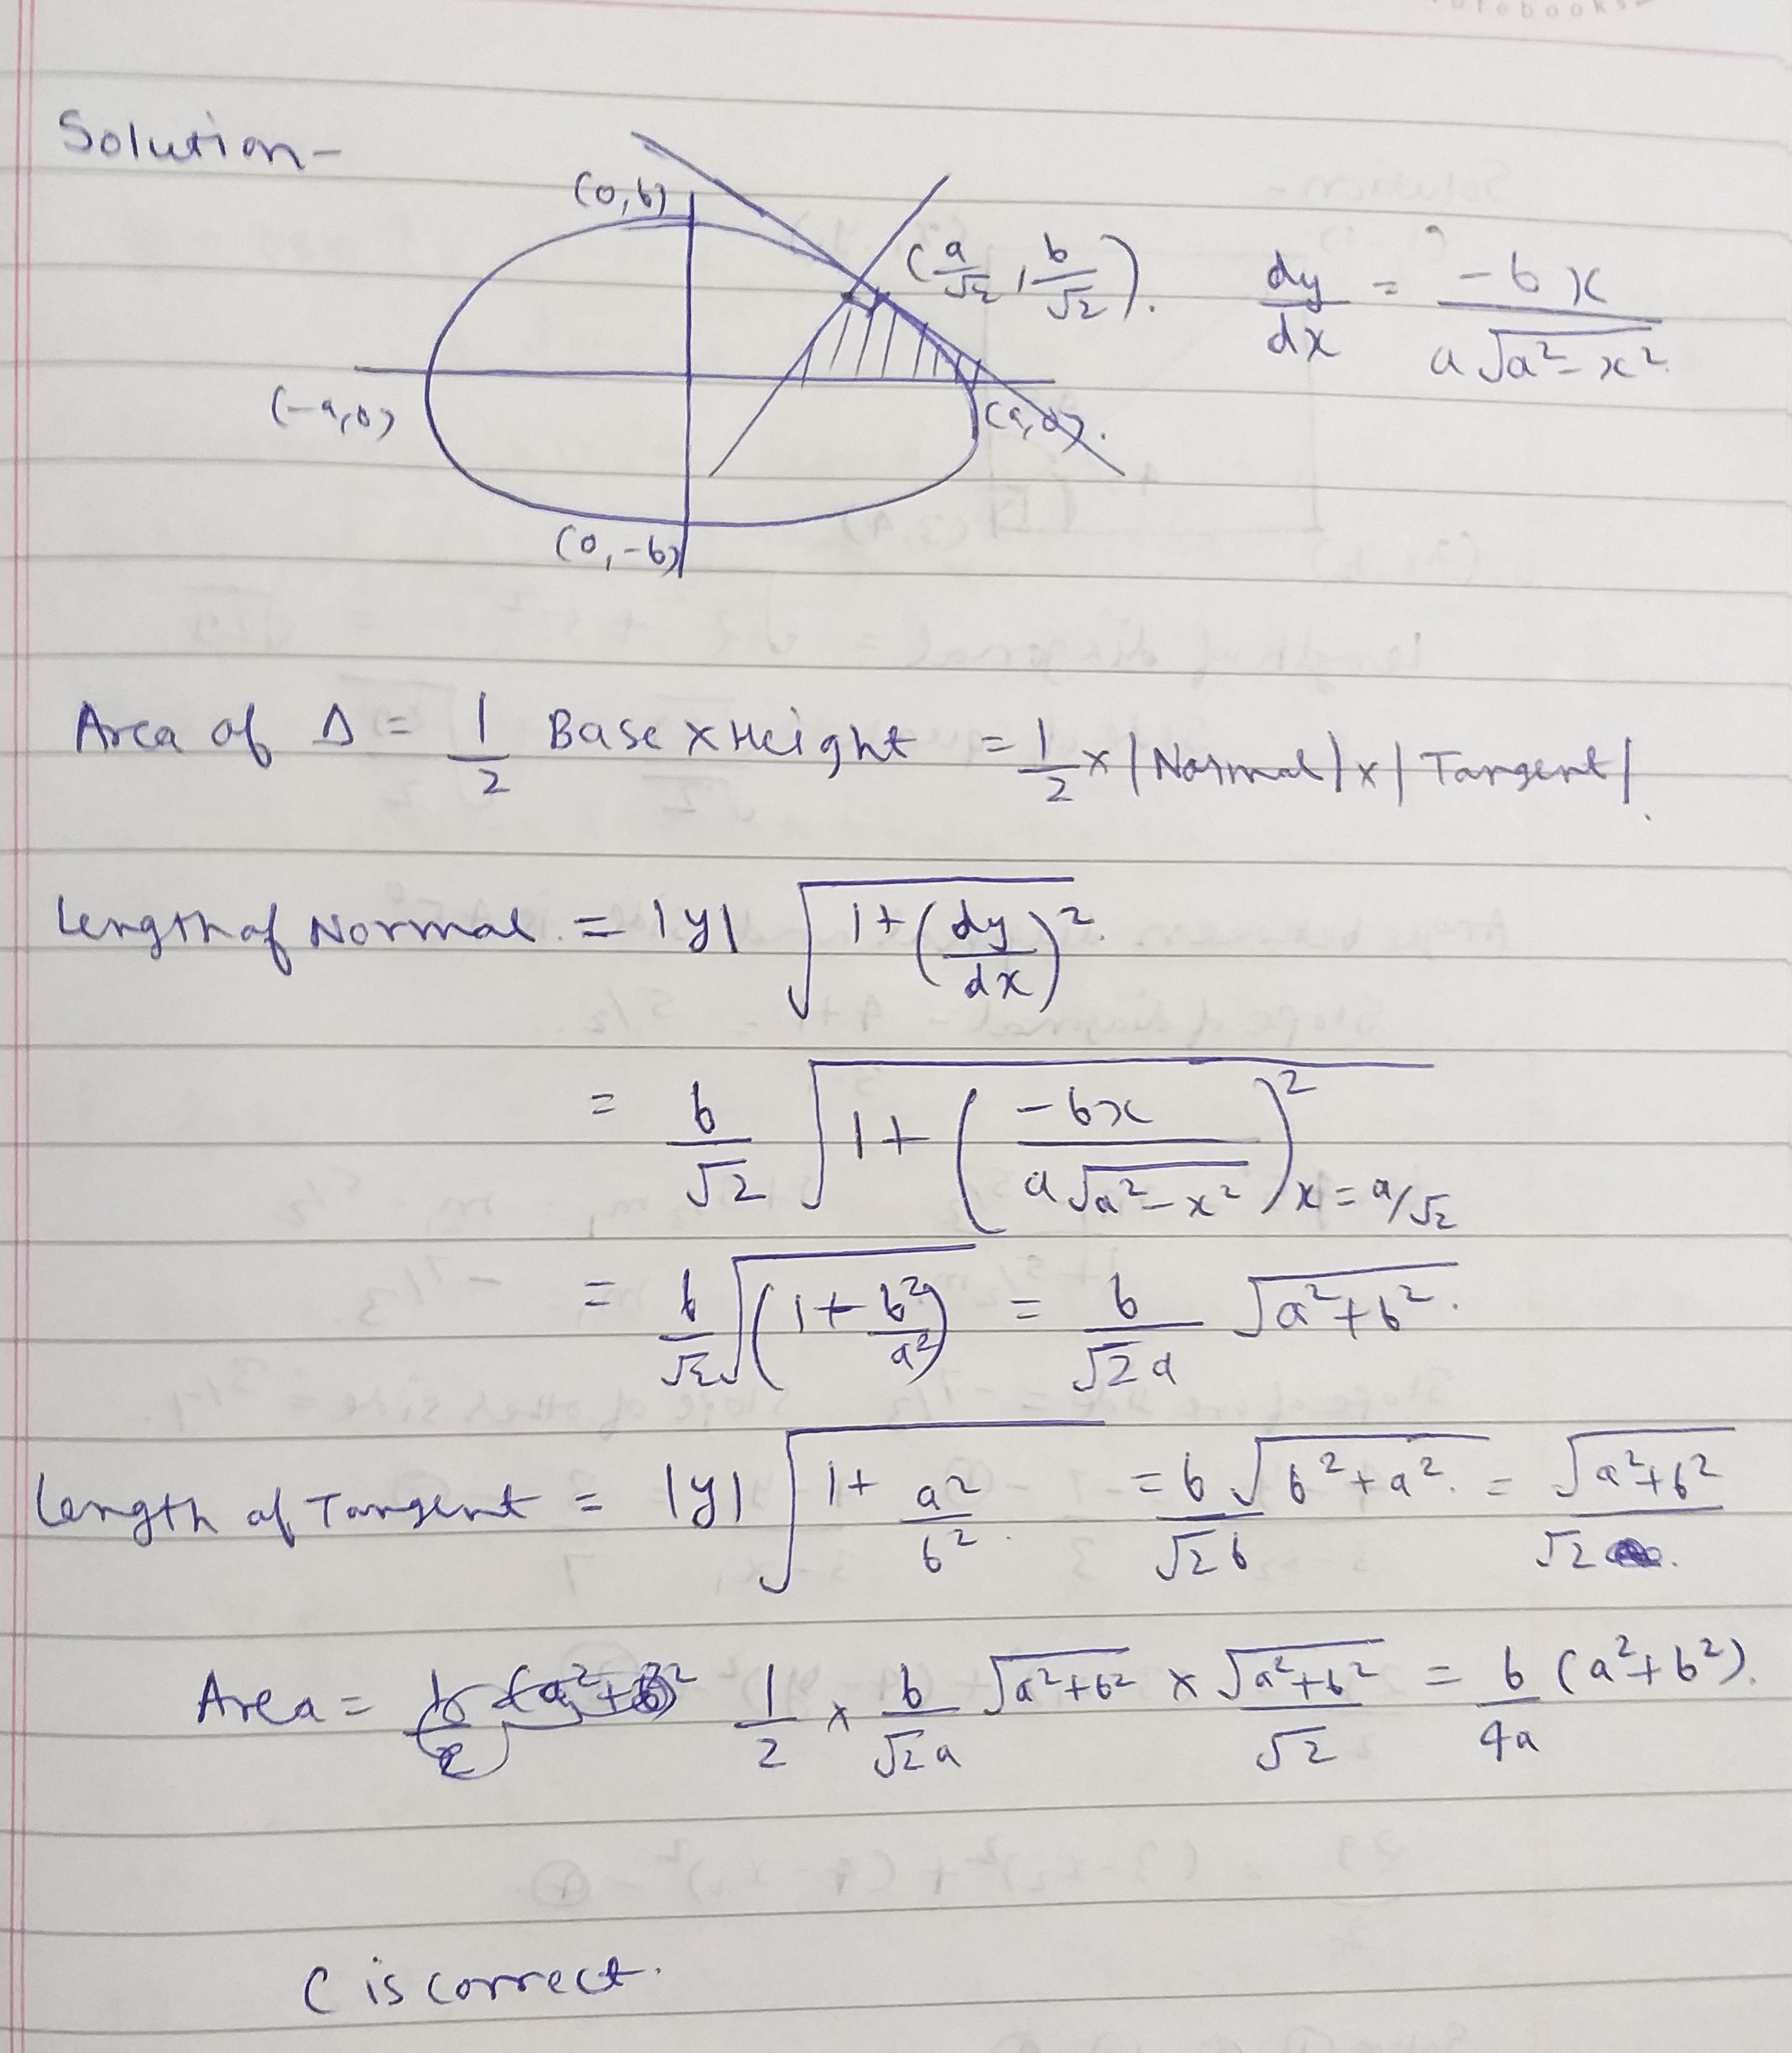 otebooks
Solution-
(0,b)
(a/√2, b/√2).
dy/dx = -bx / a√(a²-x²)
(-a,0)
(a,0).
(0,-b)
Area of Δ = 1/2 Base x Height = 1/2 x |Normal| x | Tangent|.
Length of Normal = |y| √(1+(dy/dx)²)
= b/√2 √(1+(-bx / a√(a²-x²))²) x=a/√2
= b/√2 √(1+b²/a²) = b/√2a √(a²+b²).
Length of Tangent = |y| √(1+a²/b²) = b√(b²+a²)/√2b = √(a²+b²)/√2
Area = 1/2 x b/√2a √(a²+b²) x √(a²+b²)/√2 = b/4a (a²+b²).
C is correct.